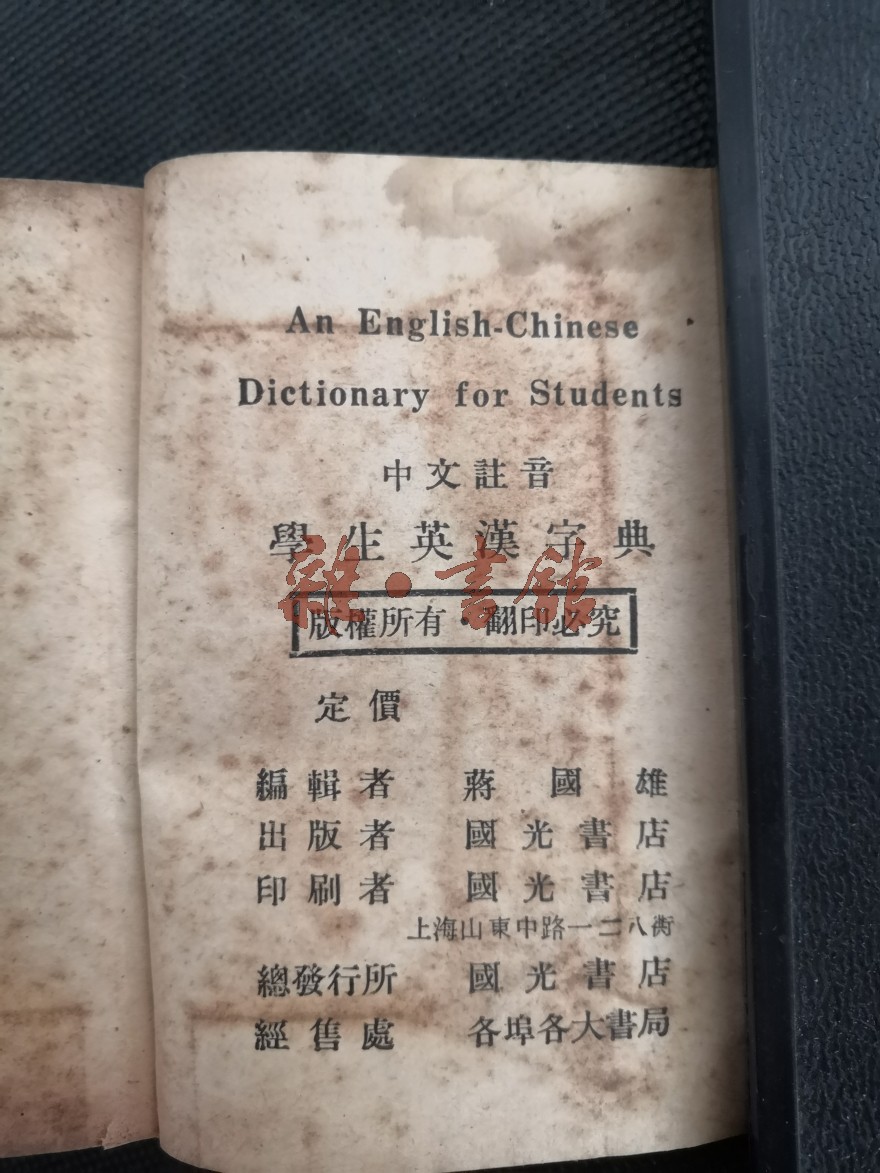 An English-Chinese
Dictionary for Students
中文註音
學生英漢字典
雜·書館
版權所有·翻印必究
定價
編輯者 蔣國雄
出版者 國光書店
印刷者 國光書店
上海山東中路一二八衖
總發行所 國光書店
經售處 各埠各大書局